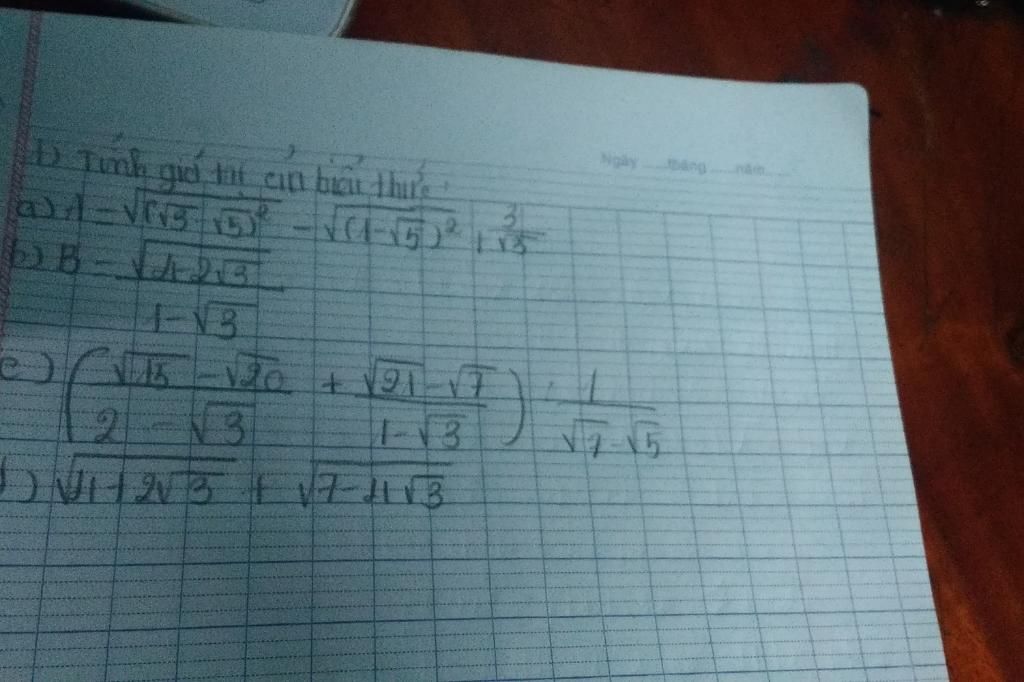 Ngày ..... tháng ..... năm .....
1) Tính giá trị của biểu thức:
a) A = √(√3 - √5)² - √(1-√5)² + 3/√3
b) B = √4-2√3 / 1-√3
c) (√15 - √20 / 2 - √3 + √21 - √7 / 1-√3) : 1 / √7-√5
d) √4+2√3 + √7-4√3